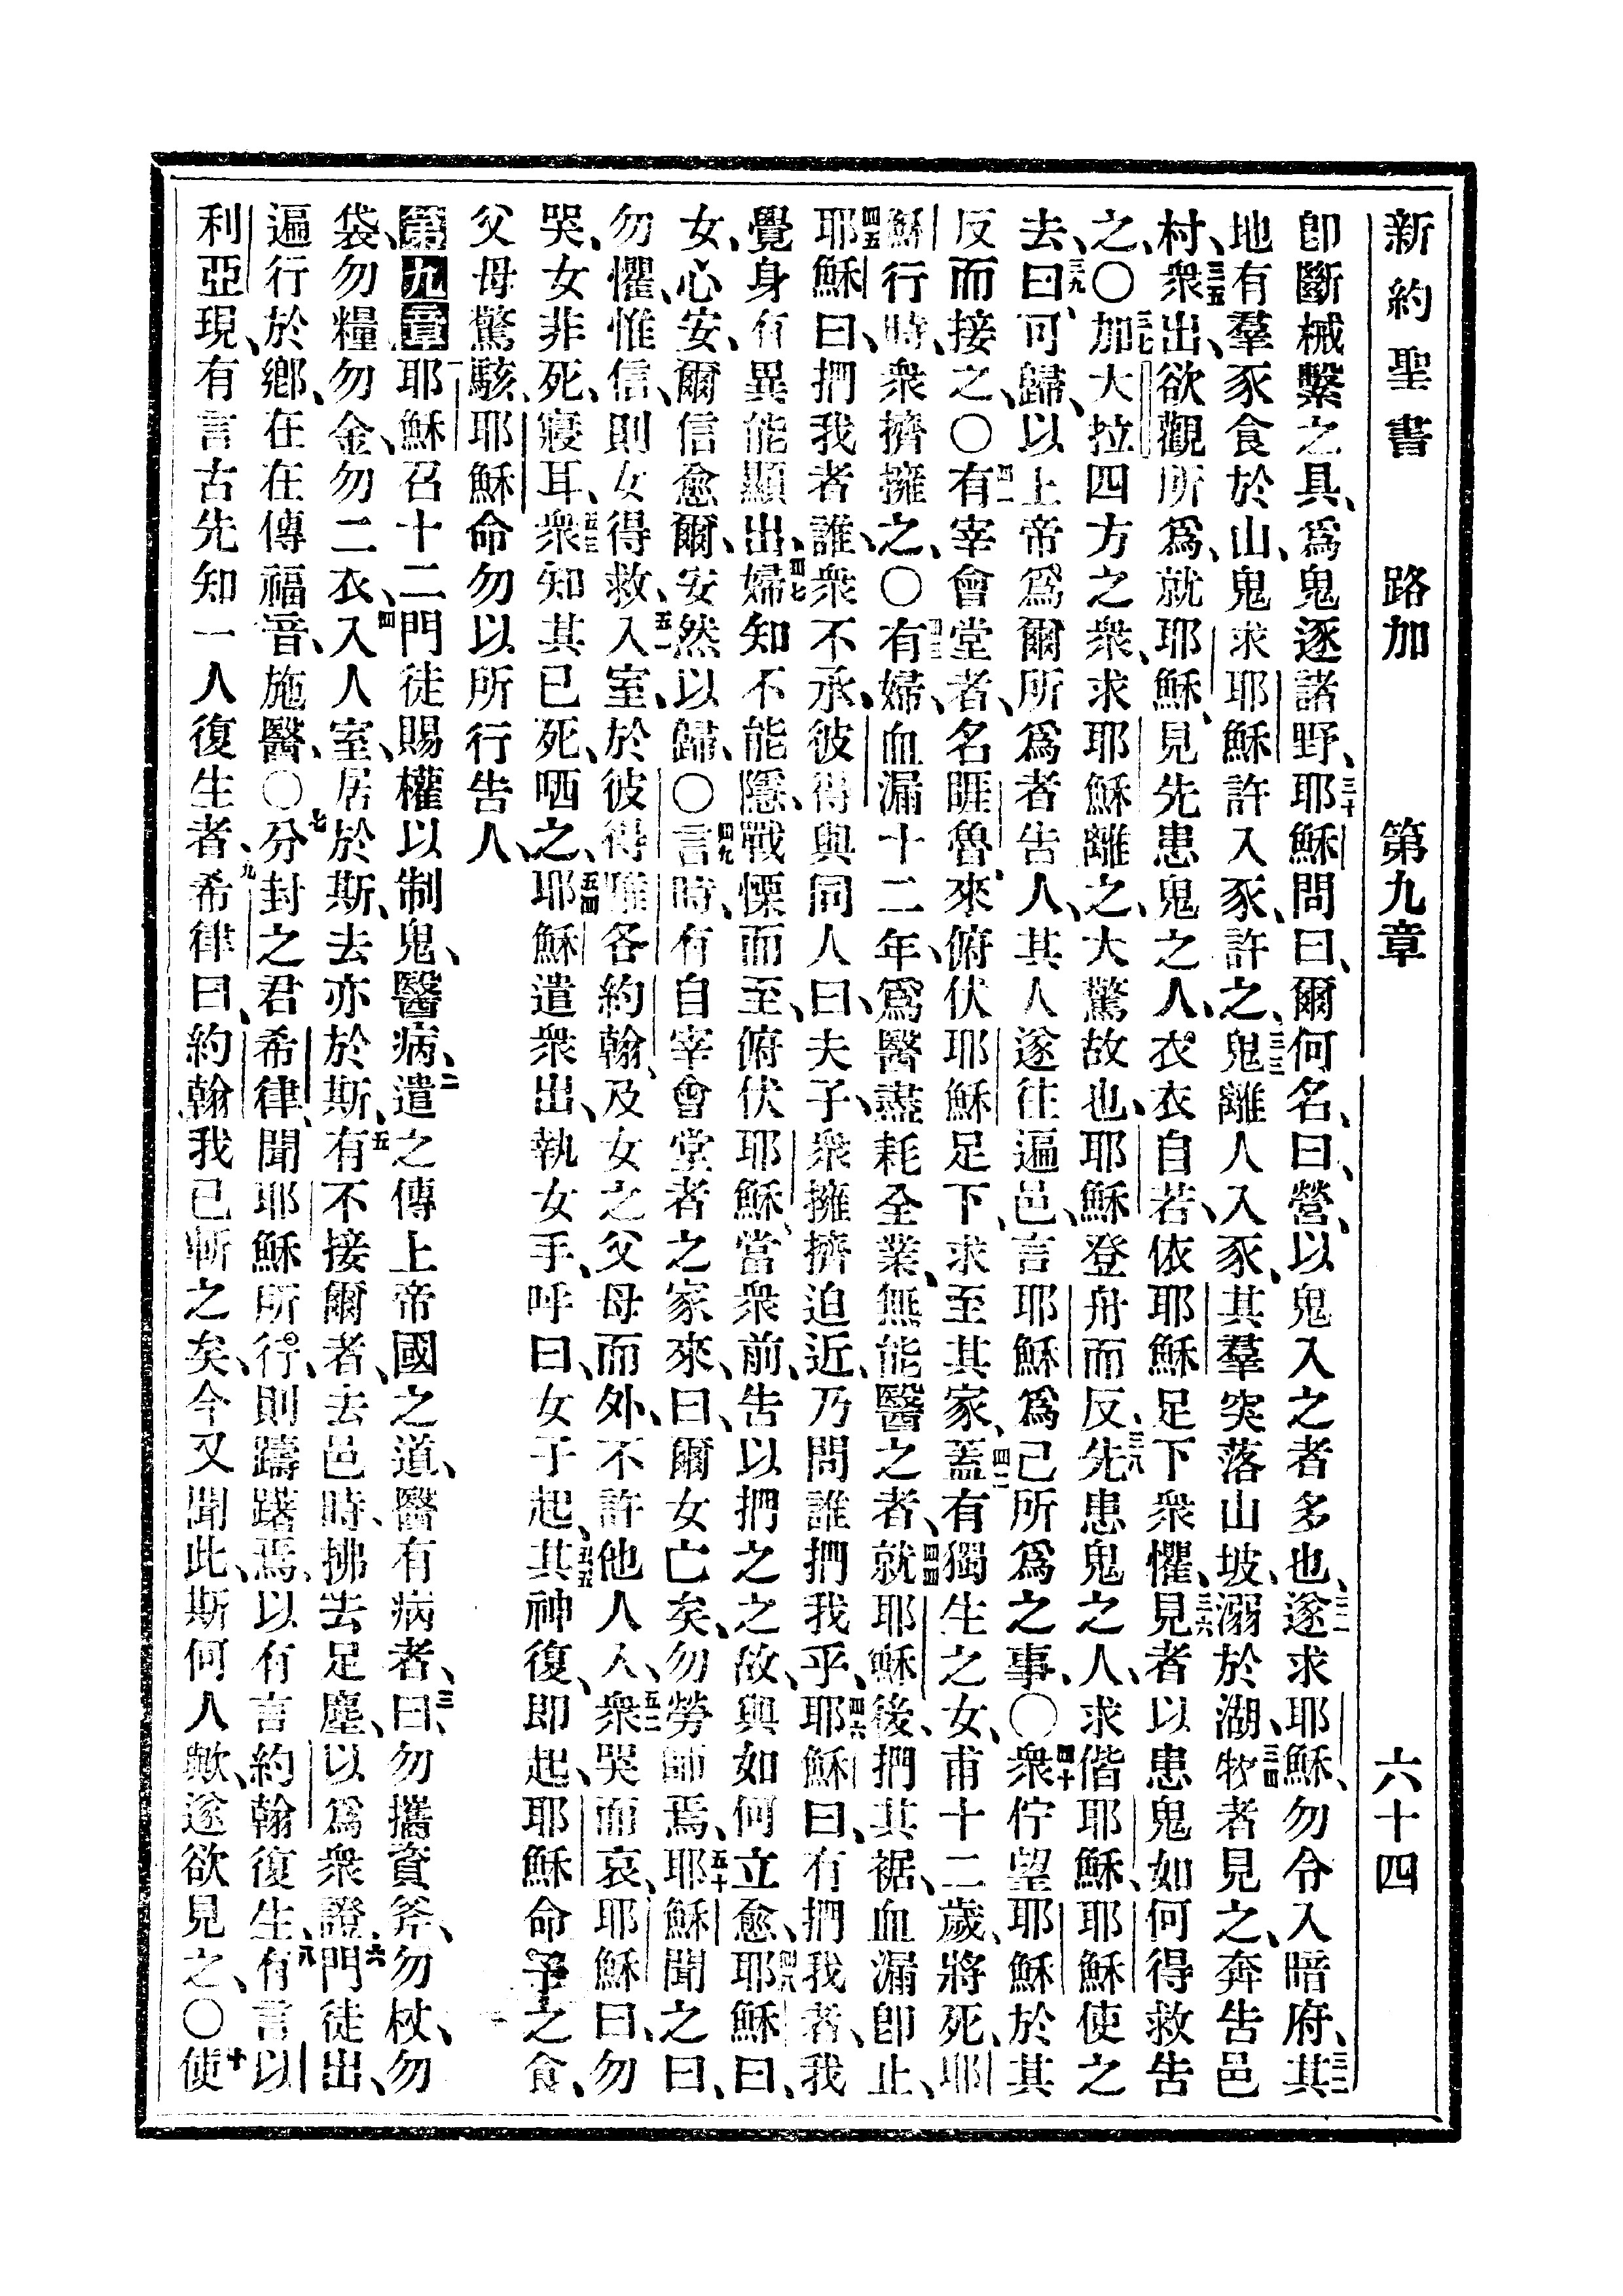 新約聖書 路加 第九章 六十四
卽斷械繫之具、爲鬼逐諸野、三十耶穌問曰、爾何名、曰、營、以鬼入之者多也、三一遂求耶穌、勿令入暗府、三二其
地有羣豕食於山、鬼求耶穌許入豕、許之、三三鬼離人入豕、其羣突落山坡、溺於湖、三四牧者見之、奔告邑
村、三五衆出、欲觀所爲、就耶穌、見先患鬼之人、衣衣自若、依耶穌足下、衆懼、三六見者以患鬼如何得救告
之、〇三七加大拉四方之衆、求耶穌離之、大驚故也、耶穌登舟而反、三八先患鬼之人、求偕耶穌、耶穌使之
去、三九曰、可歸、以上帝爲爾所爲者告人、其人遂往遍邑、言耶穌爲己所爲之事、〇四十衆佇望耶穌、於其
反而接之、〇四一有宰會堂者、名睚魯、來俯伏耶穌足下、求至其家、四二蓋有獨生之女、甫十二歲、將死、耶
穌行時、衆擠擁之、〇四三有婦、血漏十二年、爲醫盡耗全業、無能醫之者、四四就耶穌後、捫其裾、血漏卽止、
四五耶穌曰、捫我者誰、衆不承、彼得與同人曰、夫子、衆擁擠迫近、乃問誰捫我乎、四六耶穌曰、有捫我者、我
覺身有異能顯出、四七婦知不能隱、戰慄而至、俯伏耶穌、當衆前、告以捫之之故、與如何立愈、四八耶穌曰、
女、心安、爾信愈爾、安然以歸、〇四九言時、有自宰會堂者之家來、曰、爾女亡矣、勿勞師焉、五十耶穌聞之曰、
勿懼、惟信、則女得救、五一入室、於彼得雅各約翰、及女之父母而外、不許他人入、五二衆哭而哀、耶穌曰、勿
哭、女非死、寢耳、五三衆知其已死、哂之、五四耶穌遣衆出、執女手、呼曰、女子起、五五其神復、卽起、耶穌命予之食、
父母驚駭、耶穌命勿以所行告人、
第九章 耶穌召十二門徒、賜權以制鬼、醫病、二遣之傳上帝國之道、醫有病者、三曰、勿攜資斧、勿杖、勿
袋、勿糧、勿金、勿二衣、四入人室、居於斯、去亦於斯、五有不接爾者、去邑時、拂去足塵、以爲衆證、六門徒出、
遍行於鄉、在在傳福音、施醫、〇七分封之君希律、聞耶穌所行、則躊躇焉、以有言約翰復生、八有言以
利亞現、有言古先知一人復生者、九希律曰、約翰我已斬之矣、今又聞此、斯何人歟、遂欲見之、〇十使